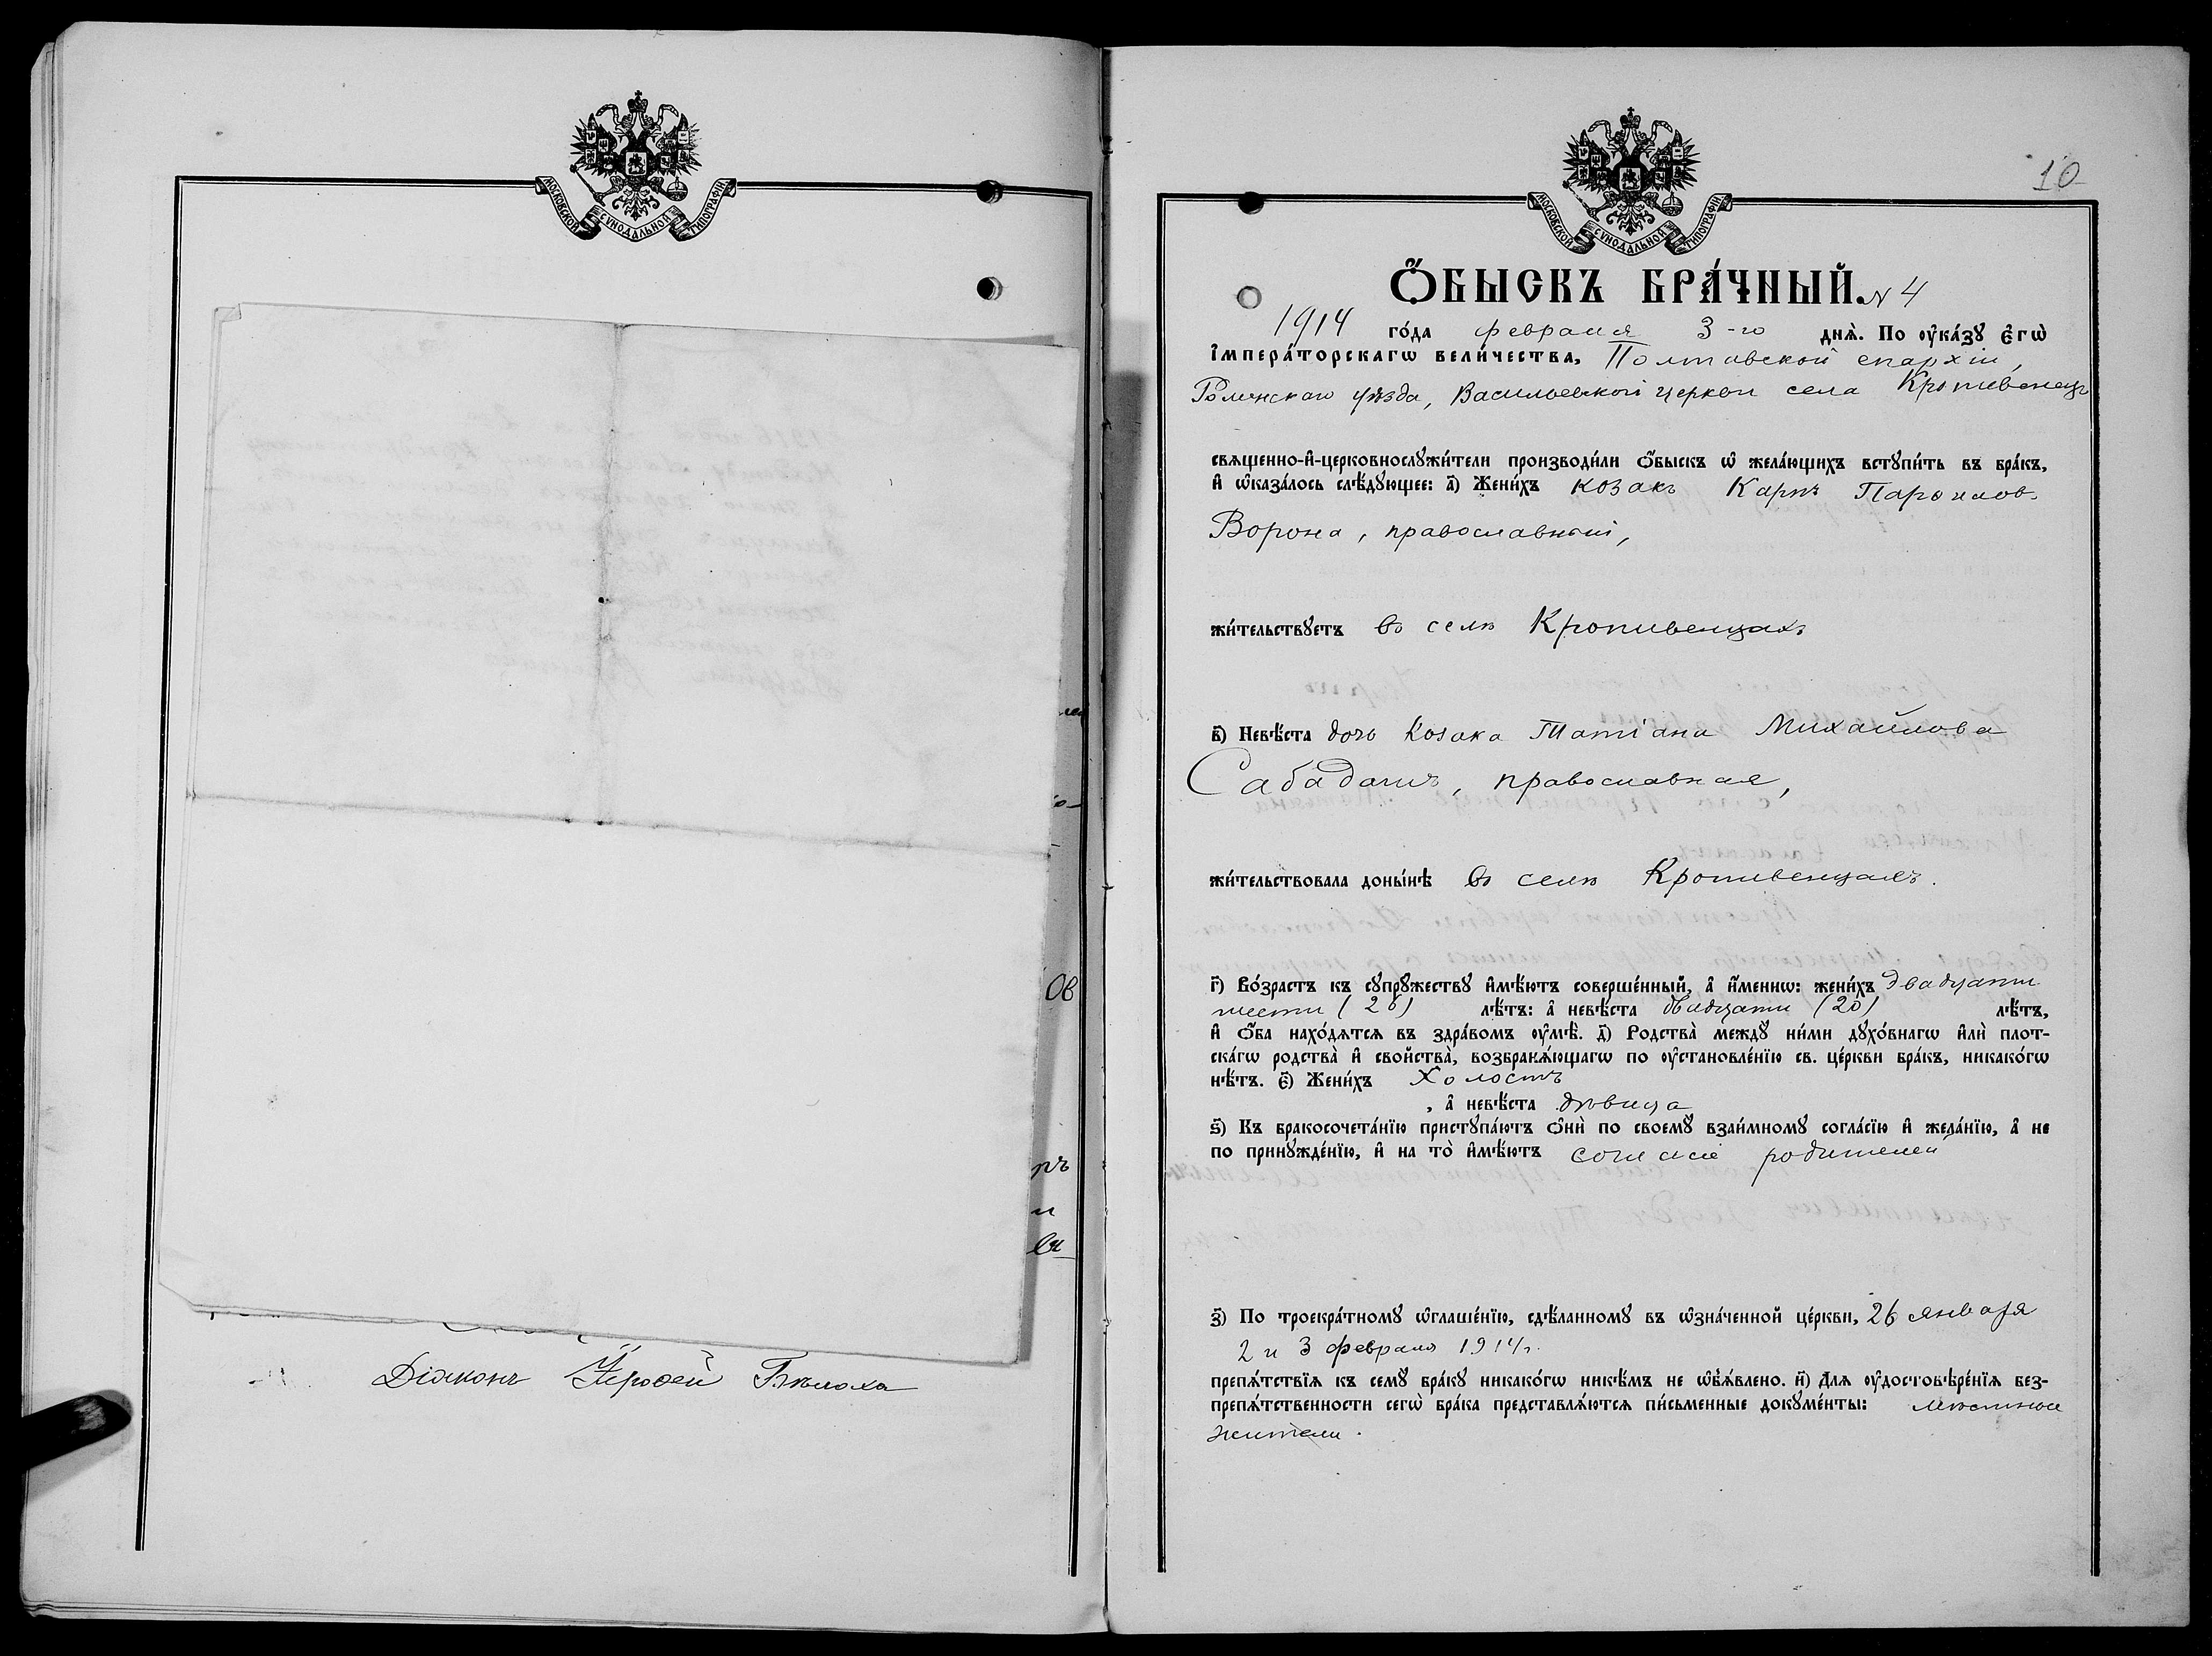 МОСКОВСКОЙ СѴНОДАЛЬНОЙ ТИПОГРАФІИ
Ов
ръ
и
Діяконъ Іерофей Бѣлоха
МОСКОВСКОЙ СѴНОДАЛЬНОЙ ТИПОГРАФІИ
10
Ѻ҆БЫСКЪ БРА́ЧНЫЙ. N 4
1914 го́да февраля 3-го днѧ̀. По ᲂу҆ка́зꙋ є҆гѡ̀
і҆мпера́торскагѡ вели́чества, Полтавской епархіи,
Роменскаго уѣзда, Васильевской церкви села Кропивенецъ
свѧщенно-и҆-церковнослꙋжи́тели производи́ли ѻ҆быскъ ѡ҆ жела́ющихъ встꙋпи́ть въ бра́къ,
и҆ ѡ҆каза́лось слѣ́дꙋющее: а҃) Жени́хъ козакъ Карпъ Парѳиловъ
Ворона, православный,
жи́тельствꙋетъ въ селѣ Кропивенцахъ
в҃) Невѣ́ста дочь козака Татіана Михайлова
Сабадашъ, православная,
жи́тельствовала доны́нѣ въ селѣ Кропивенцахъ.
г҃) Во́зрастъ къ сꙋпрꙋжествꙋ и҆мѣ́ютъ соверше́нный, а҆ и҆́менно: жени́хъ двадцати
шести (26) лѣ́тъ: а҆ невѣ́ста двадцати (20) лѣ́тъ,
и҆ ѻ҆́ба нахо́дѧтсѧ въ здра́вомъ ᲂу҆мѣ̀. д҃) Родства̀ междꙋ̀ ни́ми дꙋхо́внагѡ и҆лѝ плот-
ска́гѡ родства̀ и҆ сво́йства̀, возбранѧ́ющагѡ по ᲂу҆становле́нїю св. це́ркви бра́къ, никако́гѡ
нѣ́тъ. є҃) Жени́хъ холостъ
, а҆ невѣ́ста дѣвица
ѕ҃) Къ бракосочета́нїю пристꙋпа́ютъ ѻ҆нѝ по своемꙋ̀ взаи́мномꙋ согла́сїю и҆ жела́нїю, а҆ не
по принꙋжде́нїю, и҆ на то̀ и҆мѣ́ютъ согласіе родителей
з҃) По троекра́тномꙋ ѡ҆глаше́нїю, сдѣ́ланномꙋ въ ѡ҆зна́ченной це́ркви, 26 января
2 и 3 февраля 1914 г.
препѧ́тствїѧ къ семꙋ̀ бра́кꙋ никако́гѡ никѣ́мъ не ѡ҆б̾ѧ́влено. и҃) Для ᲂу҆достовѣре́нїѧ без-
препѧ́тственности сегѡ̀ бра́ка представлѧ́ютсѧ пи́сьменные докꙋме́нты: мѣстные
жители.